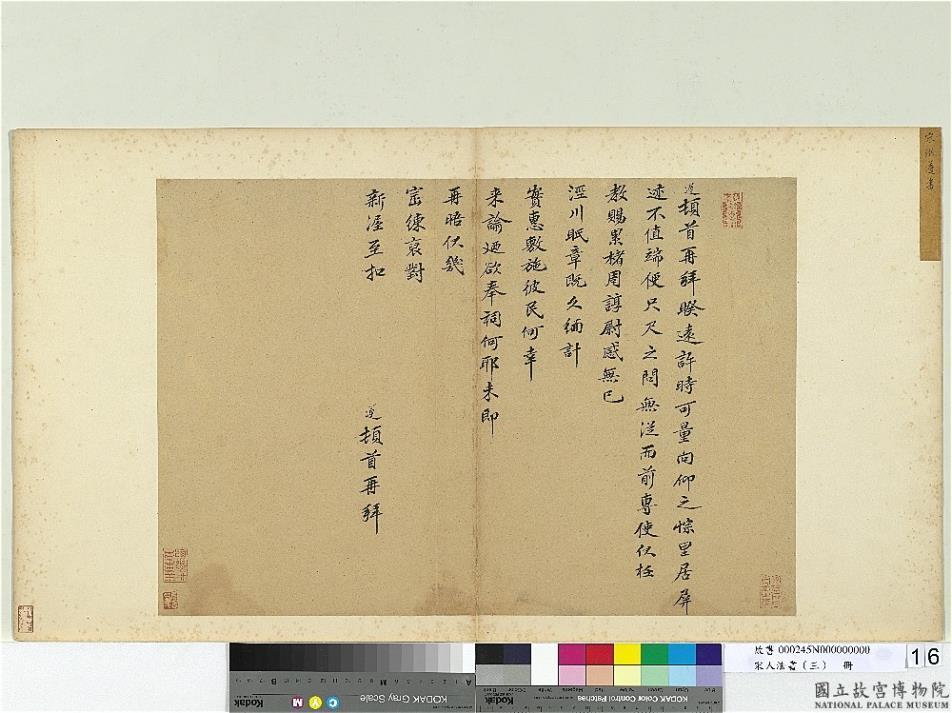 遵頓首再拜睽遠許時可量向仰之悰里居屏
迹不值端便只尺之問無從而前專使伏枉
教賜累楮周諄尉感無已
涇川眂章既久緬計
實惠敷施彼民何幸
来諭廼欲奉祠何耶未即
再晤伏幾
崈練裒對
新渥至扣
遵頓首再拜
宋洪遵書
故書 000245N000000000
宋人法書(三) 冊
16
KODAK Gray Scale
Kodak
C
Y
M
A
KODAK Color Control Patches
Kodak
國立故宮博物院
NATIONAL PALACE MUSEUM